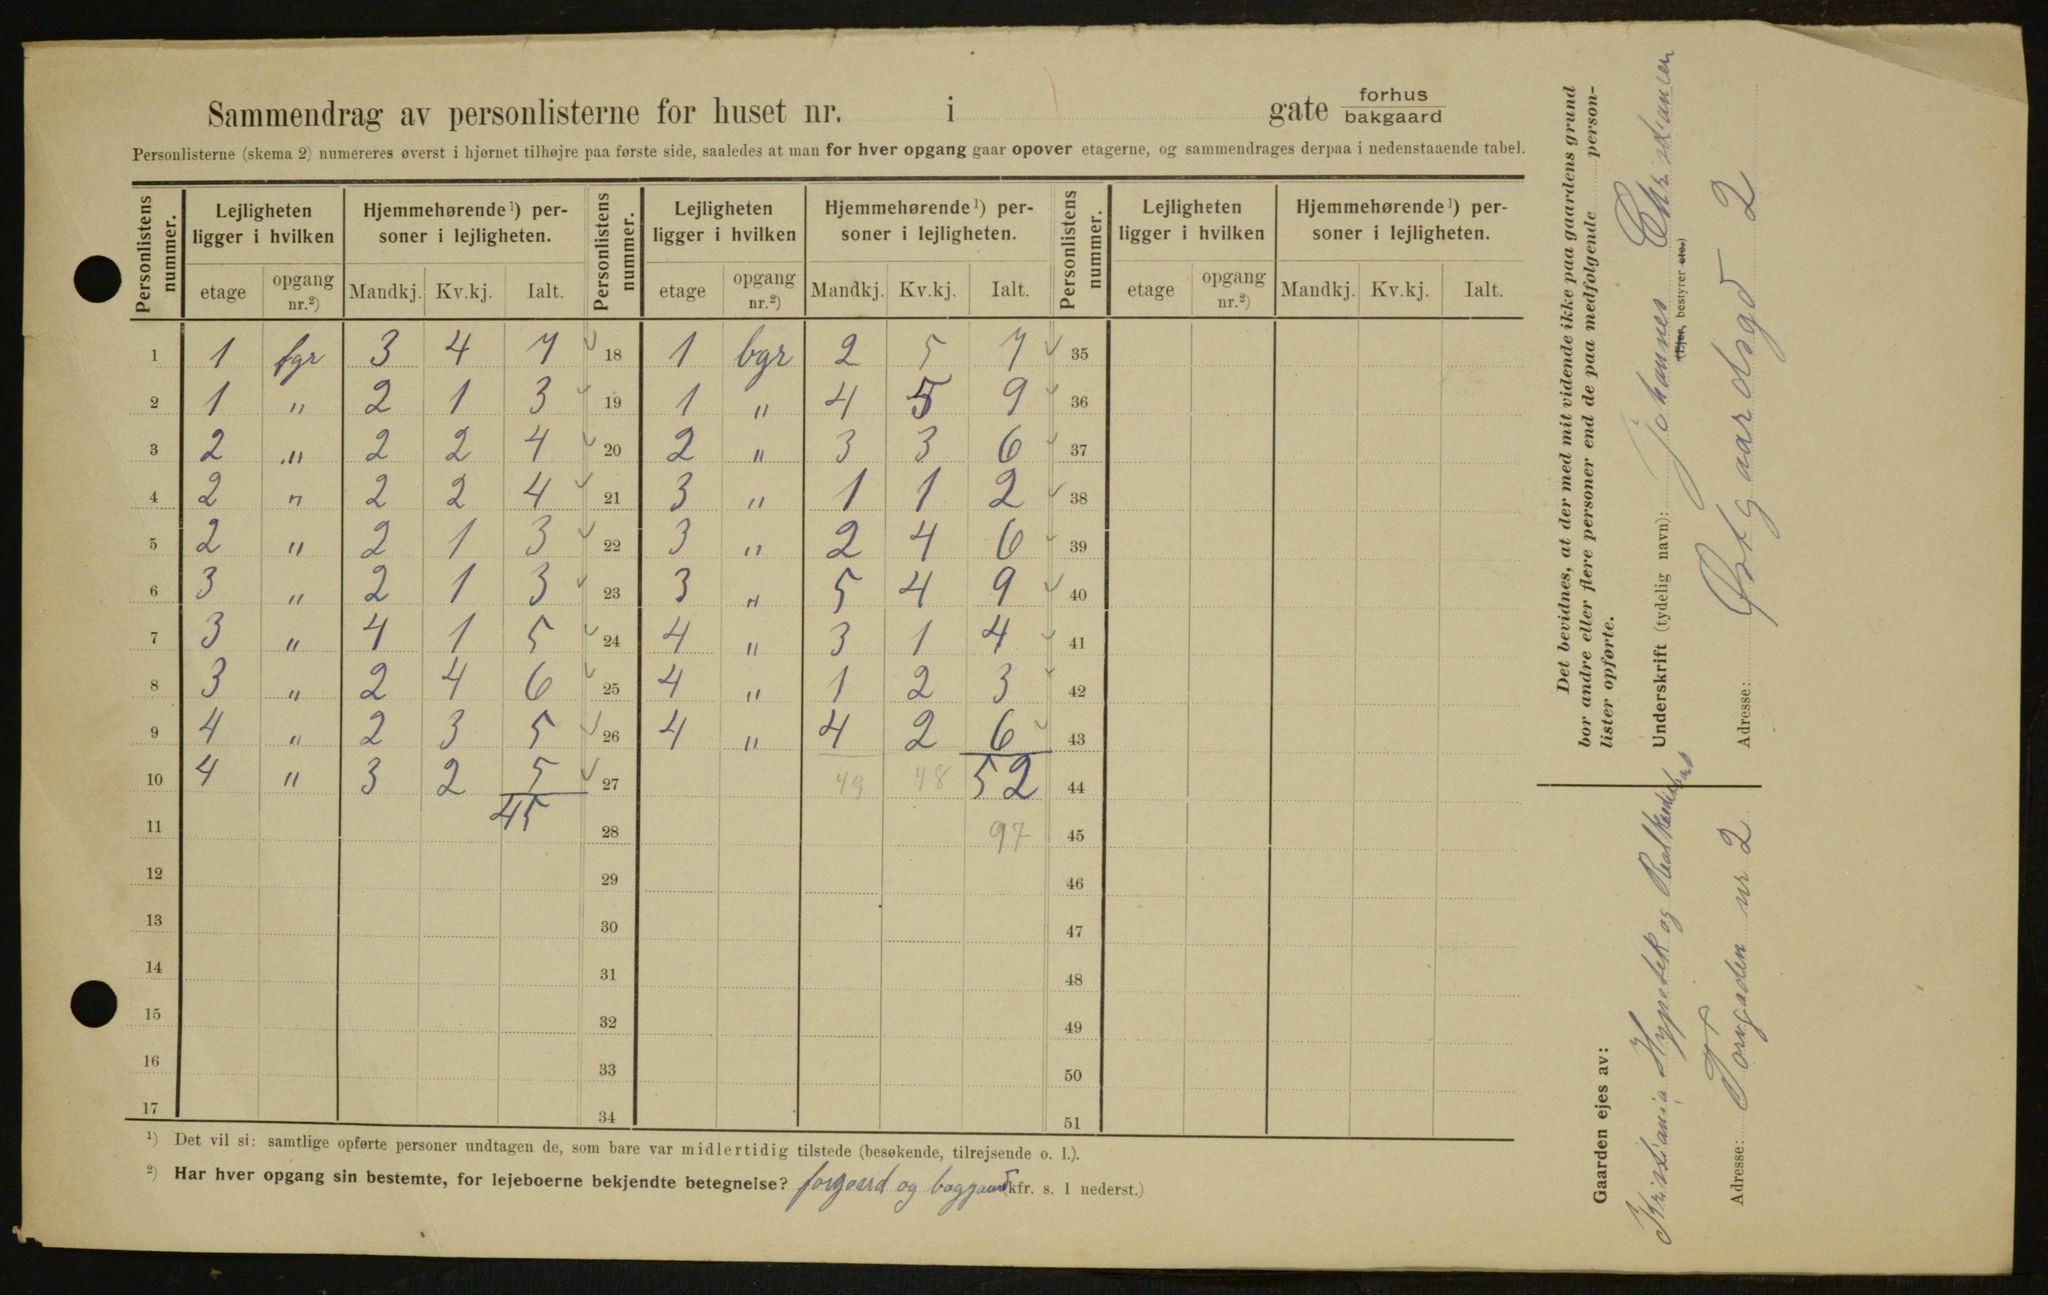 Sammendrag av personlisterne for huset nr. i gate forhus bakgaard
Personlisterne (skema 2) numereres øverst i hjørnet tilhøjre paa første side, saaledes at man for hver opgang gaar opover etagerne, og sammendrages derpaa i nedenstaaende tabel.
Personlistens nummer. Lejligheten ligger i hvilken Hjemmehørende ¹) personer i lejligheten. Personlistens nummer. Lejligheten ligger i hvilken Hjemmehørende ¹) personer i lejligheten. Personlistens nummer. Lejligheten ligger i hvilken Hjemmehørende ¹) personer i lejligheten.
etage opgang nr.²) Mandkj. Kv.kj. Ialt. etage opgang nr.²) Mandkj. Kv.kj. Ialt. etage opgang nr.²) Mandkj. Kv.kj. Ialt.
1 1 fgr 3 4 7 18 1 bgr 2 5 7 35
2 1 " 2 1 3 19 1 " 4 5 9 36
3 2 " 2 2 4 20 2 " 3 3 6 37
4 2 " 2 2 4 21 3 " 1 1 2 38
5 2 " 2 1 3 22 3 " 2 4 6 39
6 3 " 2 1 3 23 3 " 5 4 9 40
7 3 " 4 1 5 24 4 " 3 1 4 41
8 3 " 2 4 6 25 4 " 1 2 3 42
9 4 " 2 3 5 26 4 " 4 2 6 43
10 4 " 3 2 5 27 49 48 52 44
11 45 28 97 45
12 29 46
13 30 47
14 31 48
15 32 49
16 33 50
17 34 51
¹) Det vil si: samtlige opførte personer undtagen de, som bare var midlertidig tilstede (besøkende, tilrejsende o. l.).
²) Har hver opgang sin bestemte, for lejeboerne bekjendte betegnelse? forgaard og baggaard (kfr. s. 1 nederst.)
Det bevidnes, at der med mit vidende ikke paa gaardens grund
bor andre eller flere personer end de paa medfølgende person-
lister opførte.
Underskrift (tydelig navn): Johannes Christiansen
(Ejer, bestyrer etc.)
Adresse: Østgaardsgd 2
Gaarden ejes av:
Kristiania Hypotek og Realkreditbank
Adresse: Torvgaden nr 2